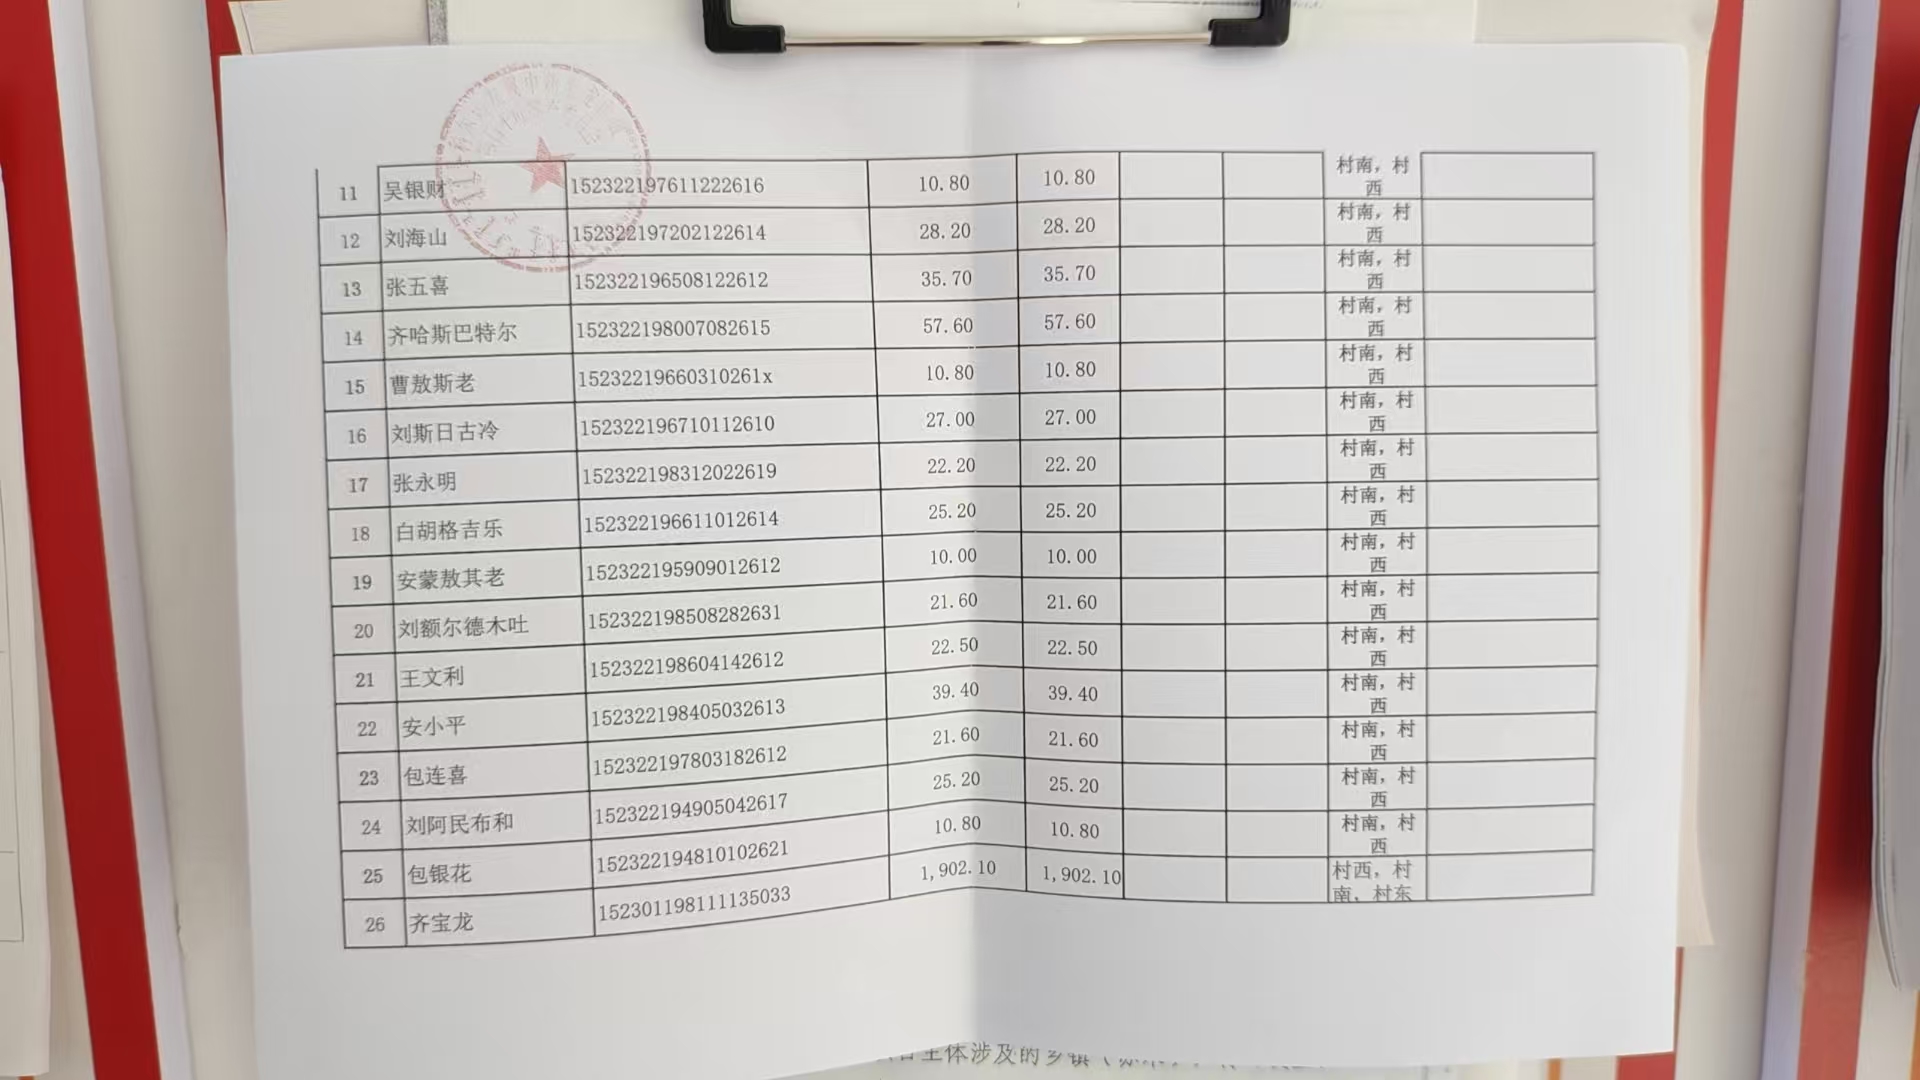 11 吴银财 152322197611222616 10.80 10.80 村南，村西
12 刘海山 152322197202122614 28.20 28.20 村南，村西
13 张五喜 152322196508122612 35.70 35.70 村南，村西
14 齐哈斯巴特尔 152322198007082615 57.60 57.60 村南，村西
15 曹敖斯老 15232219660310261x 10.80 10.80 村南，村西
16 刘斯日古冷 152322196710112610 27.00 27.00 村南，村西
17 张永明 152322198312022619 22.20 22.20 村南，村西
18 白胡格吉乐 152322196611012614 25.20 25.20 村南，村西
19 安蒙敖其老 152322195909012612 10.00 10.00 村南，村西
20 刘额尔德木吐 152322198508282631 21.60 21.60 村南，村西
21 王文利 152322198604142612 22.50 22.50 村南，村西
22 安小平 152322198405032613 39.40 39.40 村南，村西
23 包连喜 152322197803182612 21.60 21.60 村南，村西
24 刘阿民布和 152322194905042617 25.20 25.20 村南，村西
25 包银花 152322194810102621 10.80 10.80 村南，村西
26 齐宝龙 152301198111135033 1,902.10 1,902.10 村西，村南，村东
主体涉及的乡镇